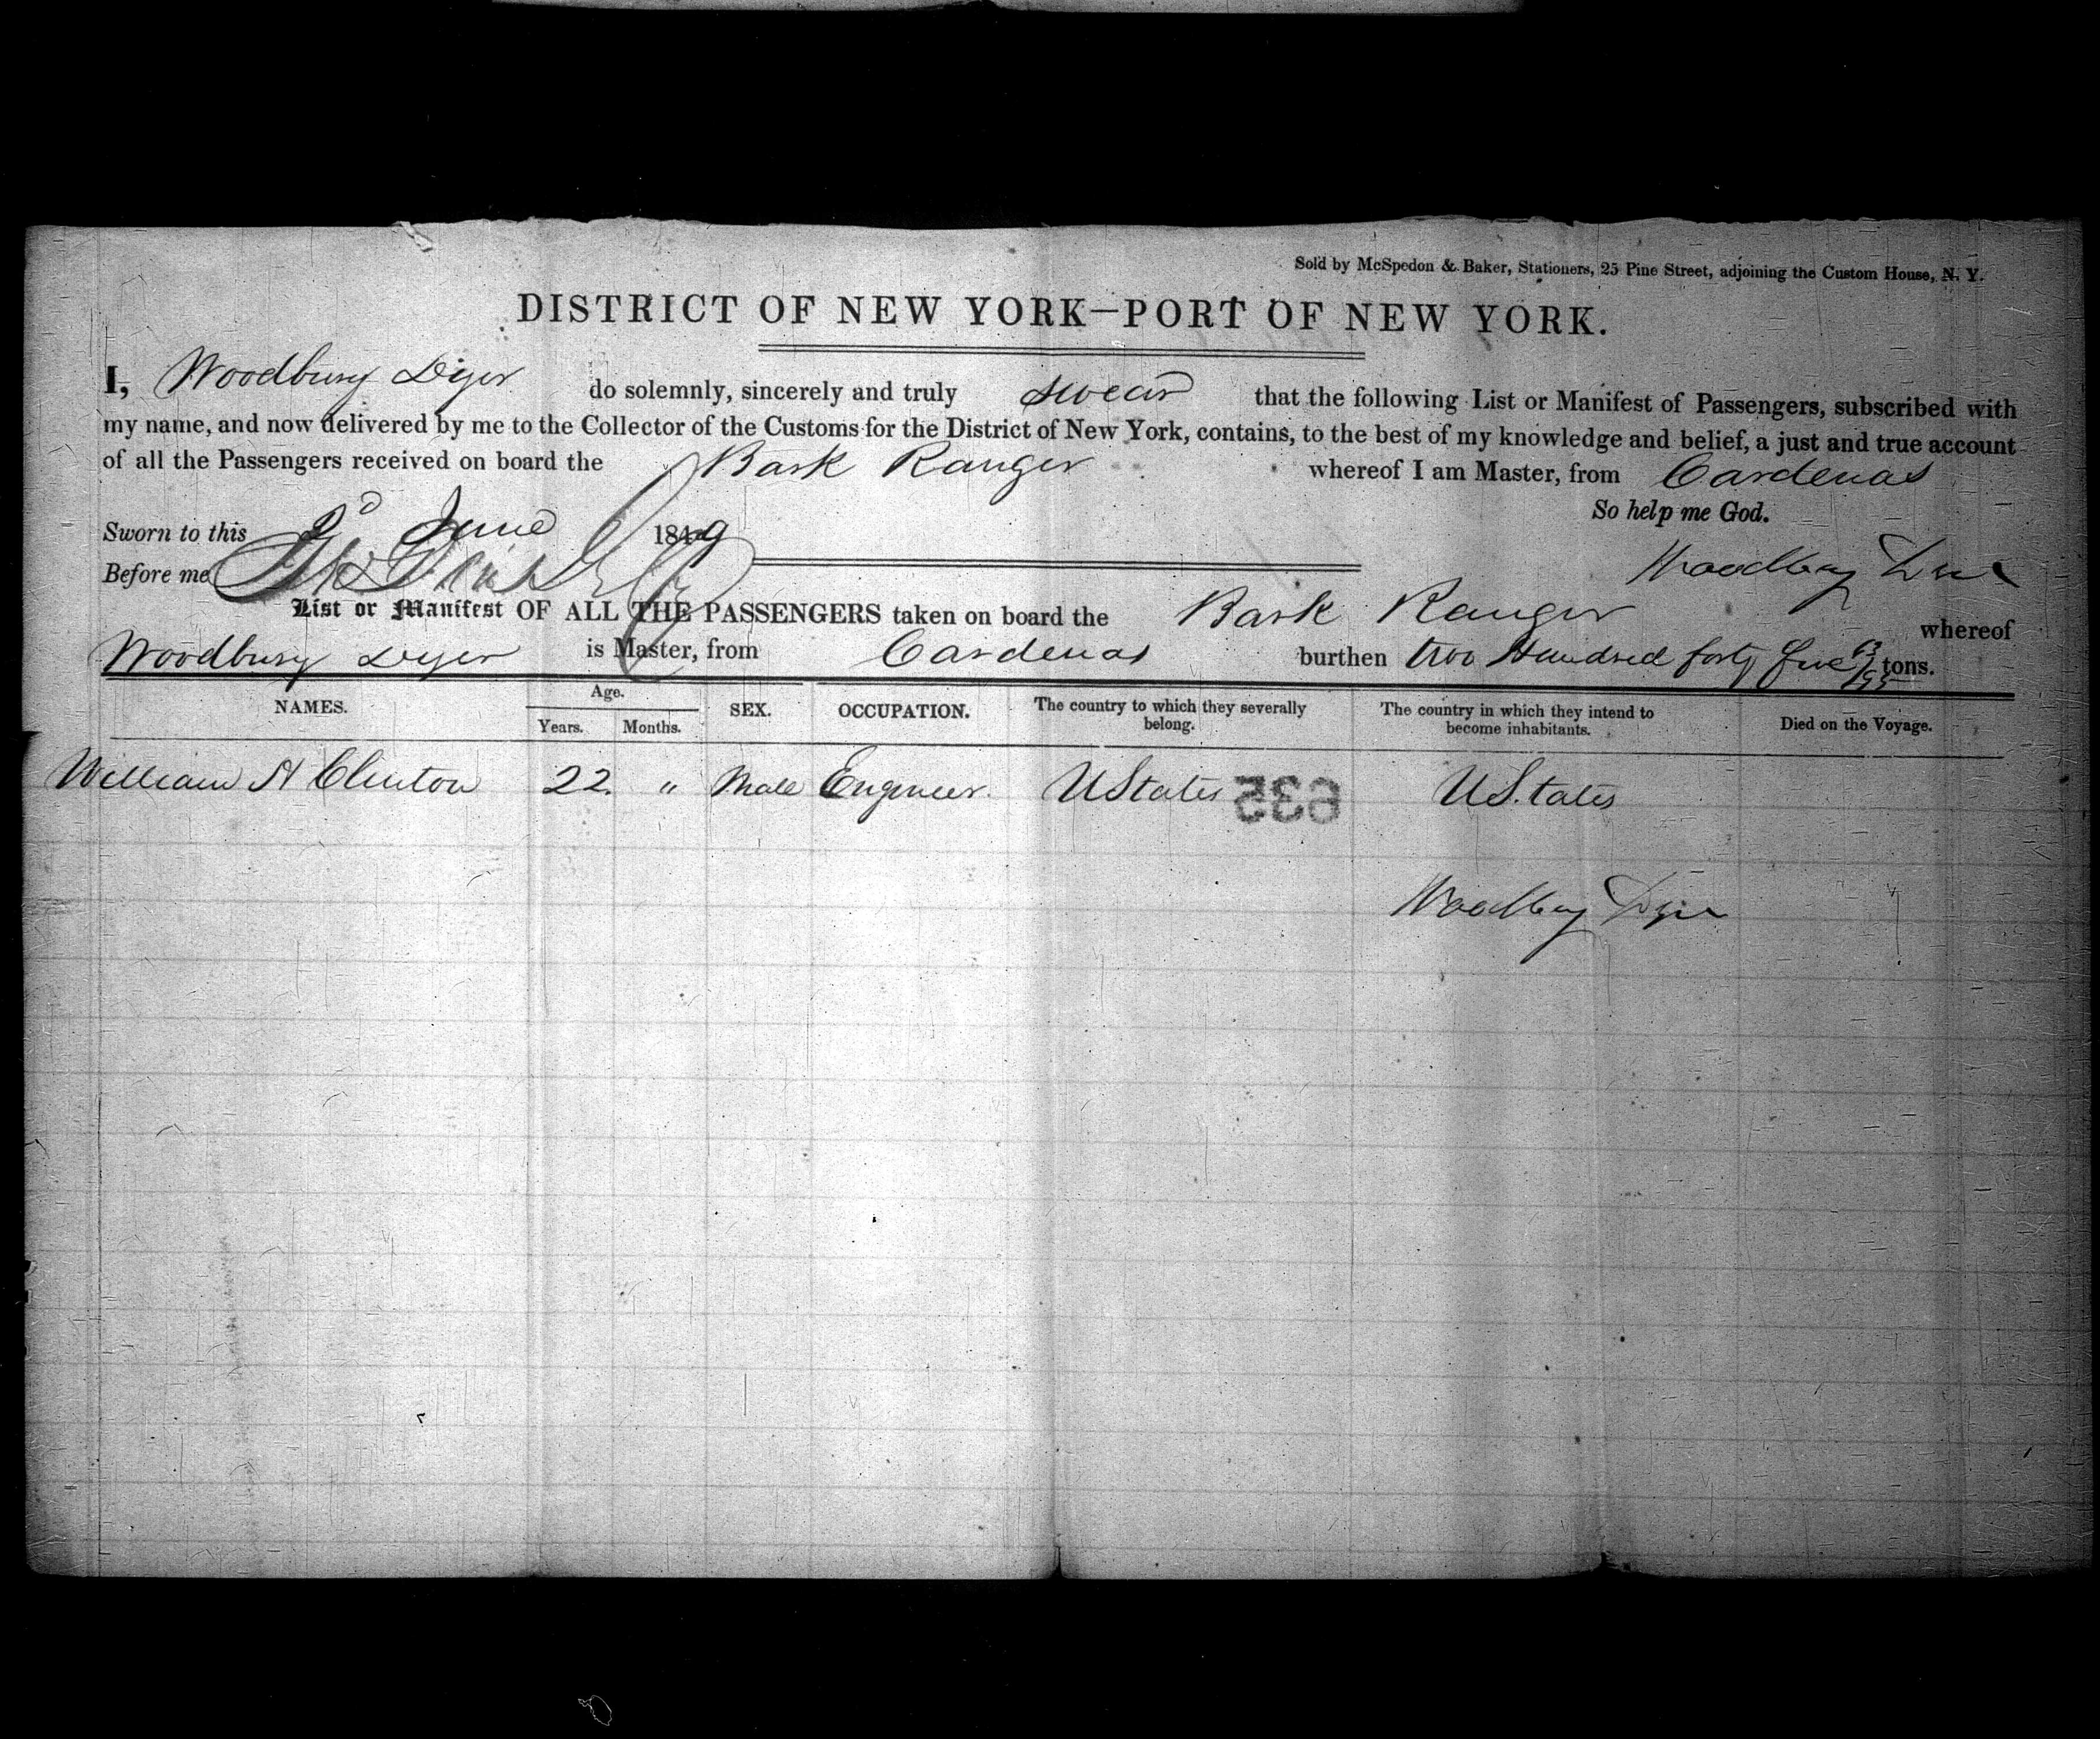 Sold by McSpedon & Baker, Stationers, 25 Pine Street, adjoining the Custom House, N. Y.
DISTRICT OF NEW YORK—PORT OF NEW YORK.
I, Woodbury Dyer do solemnly, sincerely and truly swear that the following List or Manifest of Passengers, subscribed with
my name, and now delivered by me to the Collector of the Customs for the District of New York, contains, to the best of my knowledge and belief, a just and true account
of all the Passengers received on board the Bark Ranger whereof I am Master, from Cardenas
So help me God.
Sworn to this 2d June 1849
Before me
Woodbury Dyer
List or Manifest OF ALL THE PASSENGERS taken on board the Bark Ranger whereof
Woodbury Dyer is Master, from Cardenas burthen two Hundred forty five 63/95 tons.
NAMES. Age. Years. Months. SEX. OCCUPATION. The country to which they severally belong. The country in which they intend to become inhabitants. Died on the Voyage.
William H Clinton 22. " Male Engineer. UStates 635 U.States
Woodbury Dyer